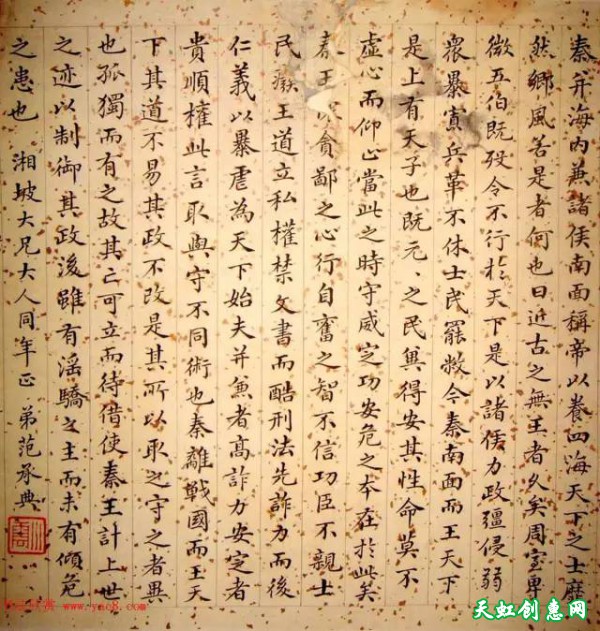 秦并海内兼諸侯南面稱帝以養四海天下之士靡
然鄉風若是者何也曰近古之無王者久矣周室卑
微五伯既歿令不行於天下是以諸侯力政彊侵弱
衆暴寡兵革不休士民罷敝今秦南面而王天下
是上有天子也既元、之民兾得安其性命莫不
虛心而仰上當此之時守威定功安危之本在於此矣
秦王貪鄙之心行自奮之智不信功臣不親士
民廢王道立私權禁文書而酷刑法先詐力而後
仁義以暴虐為天下始夫并兼者高詐力安定者
貴順權此言取與守不同術也秦離戰國而王天
下其道不易其政不改是其所以取之守之者異
也孤獨而有之故其亡可立而待借使秦王計上世
之迹以制御其政後雖有淫驕之主而未有傾危
之患也 湘坡大兄大人同年正 弟范承典
天虹创意网